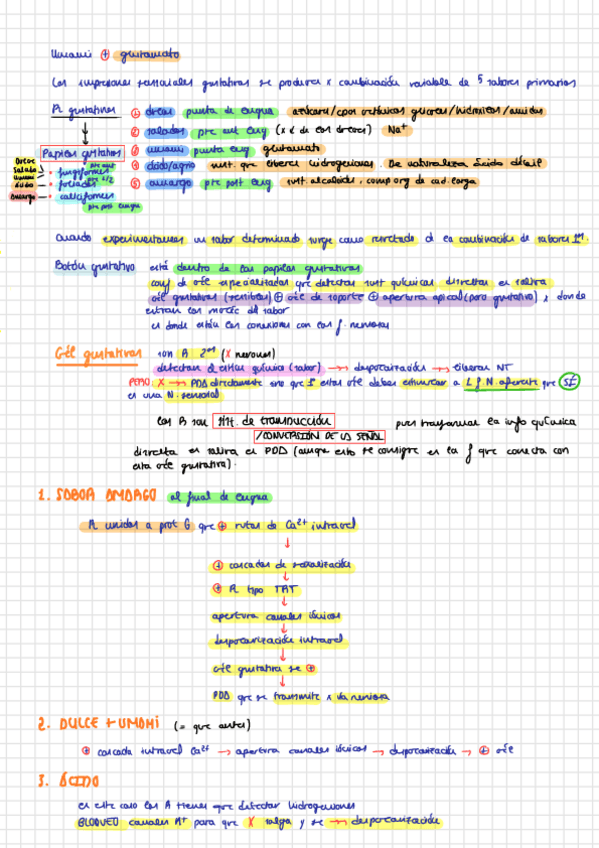 Umami + glutamato
Las impresiones sensoriales gustativas se producen x combinación variable de 5 sabores primarios
R gustativos
① dulces punta de lengua azúcares/comp orgánicos glicoles/hidrólisis/amidas
② salados pte ant leng (x δ de los dulces) Na+
③ umami punta leng glutamato
④ ácido/agrio sust. que liberen hidrogeniones. De naturaleza ácido débil
⑤ amargo pte post leng sust alcaloides, comp org de cad. larga
Papilas gustativas
Dulce
Salado
Umami
Ácido
Amargo
fungiformes pte ant
foliadas pte 1/2
caliciformes
pte post lengua
Cuando experimentamos un sabor determinado surge como resultado de la combinación de sabores 1º.
Botón gustativo está dentro de las papilas gustativas
conj de cél especializadas que detectan sust químicas disueltas en saliva
cél gustativas (sensitivas) + cél de soporte + apertura apical (poro gustativo), donde
entran las moléc del sabor
es donde están las conexiones con las f. nerviosas
Cél gustativas son R 2os (X nerviosos)
detectan el estím químico (sabor) → despolarización → liberan NT
PERO: X → PDA directamente sino que 1º estas cél deben estimular a L f N. aferente que SÍ
es una N. sensorial
Los R son MM. de TRANSDUCCIÓN
/CONVERSIÓN DE LA SEÑAL
pues transforman la info química
disuelta en saliva en PDA (aunque esto se consigue en la f que conecta con
esta cél gustativa).
1. SABOR AMARGO al final de lengua
R unidos a prot G que + rutas de Ca2+ intracel
↓
+ cascadas de señalización
↓
+ R tipo TRT
↓
apertura canales iónicos
↓
despolarización intracel
↓
cél gustativa se +
↓
PDA que se transmite x vía nerviosa
2. DULCE + UMAMI (= que antes)
+ cascada intracel Ca2+ → apertura canales iónicos → despolarización → + cél
3. ÁCIDO
en este caso los R tienen que detectar hidrogeniones
BLOQUEO canales K+ para que X salga y se → despolarización